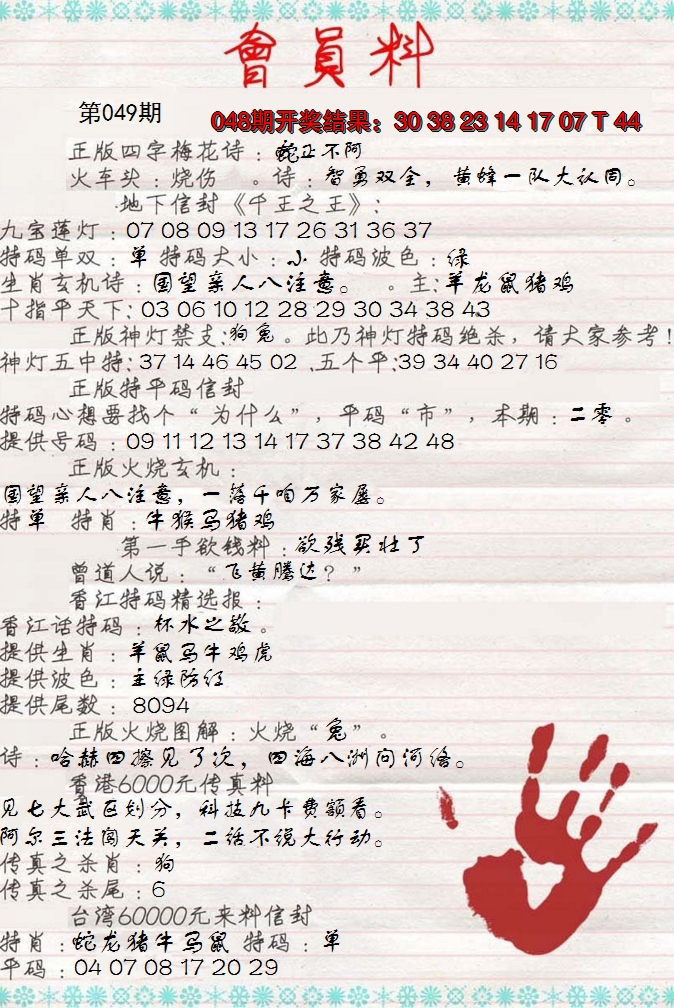 會員料
第049期
048期开奖结果：30 38 23 14 17 07 T 44
正版四字梅花诗：蛇正不阿
火车头：烧伤 。诗：智勇双全，黄蜂一队大认同。
地下信封《千王之王》：
九宝莲灯：07 08 09 13 17 26 31 36 37
特码单双：单 特码大小：小 特码波色：绿
生肖玄机诗：国望亲人八注意。 。主：羊龙鼠猪鸡
十指平天下：03 06 10 12 28 29 30 34 38 43
正版神灯禁支：狗兔。此乃神灯特码绝杀，请大家参考！
神灯五中特：37 14 46 45 02 .五个平：39 34 40 27 16
正版特平码信封
特码心想要找个“为什么”，平码“市”，本期：二零。
提供号码：09 11 12 13 14 17 37 38 42 48
正版火烧玄机：
国望亲人八注意，一落千咱万家屡。
特单 特肖：牛猴马猪鸡
第一手欲钱料：欲残买壮了
曾道人说：“飞黄腾达？”
香江特码精选报：
香江话特码：杯水之敬。
提供生肖：羊鼠马牛鸡虎
提供波色：主绿防红
提供尾数：8094
正版火烧图解：火烧“兔”。
诗：哈赫四擦见了次，四海八洲问河络。
香港6000元传真料
见七大武区划分，科技九卡费额看。
阿尔三法闯天关，二话不说大行动。
传真之杀肖：狗
传真之杀尾：6
台湾60000元来料信封
特肖：蛇龙猪牛马鼠 特码：单
平码：04 07 08 17 20 29